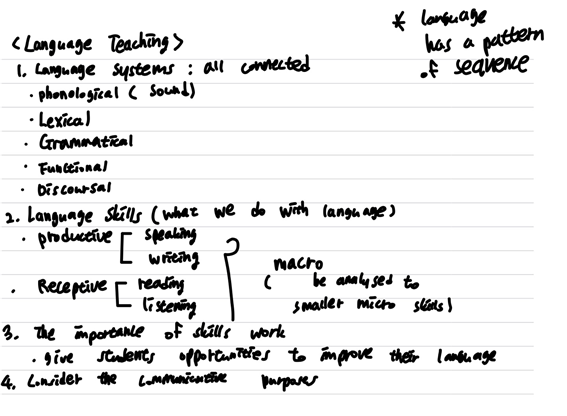 * language
has a pattern
of sequence
<Language Teaching>
1. Language systems : all connected
· phonological ( sound)
· Lexical
· Grammatical
· Functional
· Discoursal
2. Language skills (what we do with language)
· productive [ speaking
writing
macro
· Receptive [ reading
( be analysed to
listening
smaller micro skills)
3. The importance of skills work
· give students opportunities to improve their language
4. Consider the communicative purposes